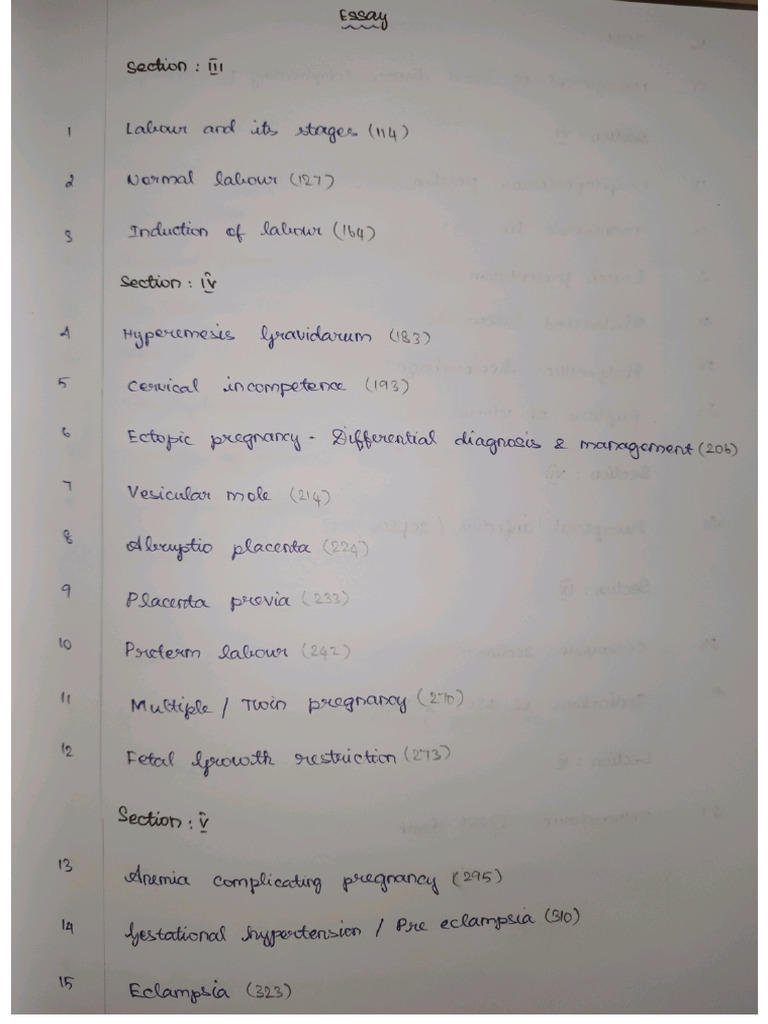 Essay
Section : III
1 Labour and its stages (114)
2 Normal labour (127)
3 Induction of labour (164)
Section : IV
4 Hyperemesis Gravidarum (183)
5 Cervical incompetence (193)
6 Ectopic pregnancy - Differential diagnosis & management (206)
7 Vesicular mole (214)
8 Abruptio placenta (224)
9 Placenta previa (233)
10 Preterm labour (242)
11 Multiple / Twin pregnancy (270)
12 Fetal Growth restriction (273)
Section : V
13 Anemia complicating pregnancy (295)
14 Gestational hypertension / Pre eclampsia (310)
15 Eclampsia (323)